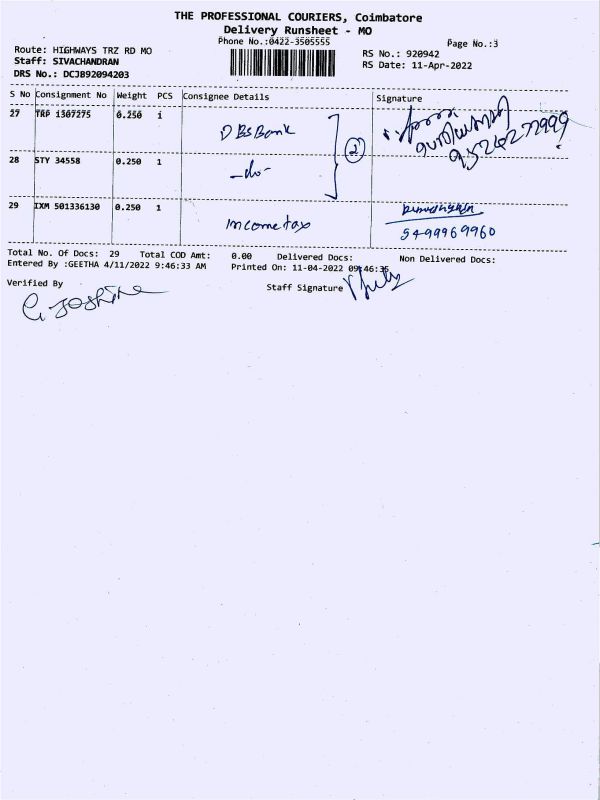 THE PROFESSIONAL COURIERS, Coimbatore
Delivery Runsheet - MO
Phone No.:0422-3505555
Page No.:3
Route: HIGHWAYS TRZ RD MO
RS No.: 920942
Staff: SIVACHANDRAN
RS Date: 11-Apr-2022
DRS No.: DCJB92094203
S No Consignment No Weight PCS Consignee Details Signature
27 TRP 1307275 0.250 1 DBS Bank
2
28 STY 34558 0.250 1 -do-
29 IXM 501336130 0.250 1 Incometax
9499969960
Total No. Of Docs: 29 Total COD Amt: 0.00 Delivered Docs: Non Delivered Docs:
Entered By :GEETHA 4/11/2022 9:46:33 AM Printed On: 11-04-2022 09:46:35
Verified By
Staff Signature
G. Joshina